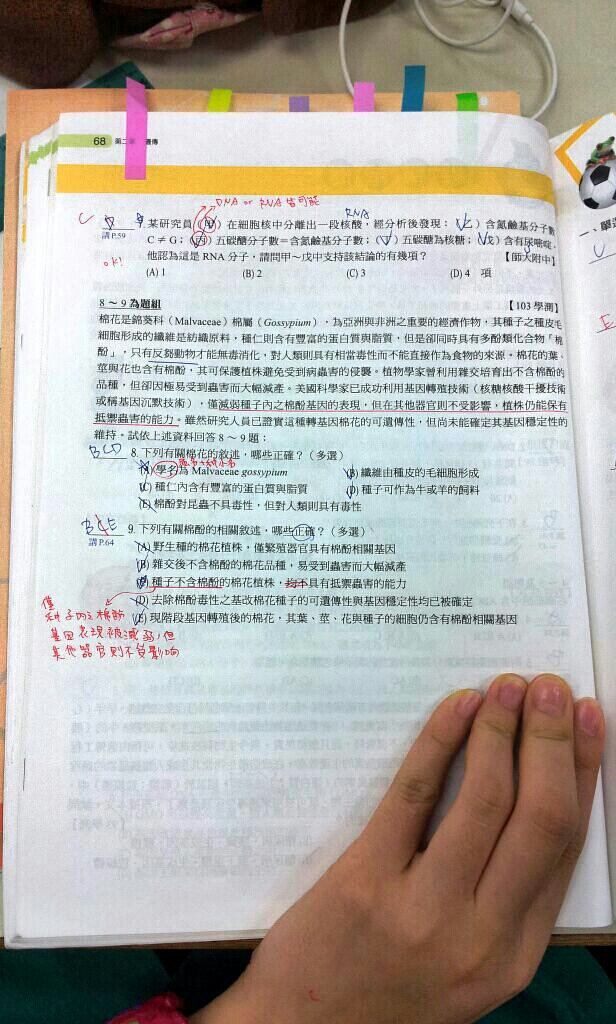 68 第二章 遺傳
DNA or RNA皆可能
RNA
C
講P.59
ok!
某研究員(甲)在細胞核中分離出一段核酸,經分析後發現:(乙)含氮鹼基分子數
C≠G;(丙)五碳醣分子數=含氮鹼基分子數;(丁)五碳醣為核糖;(戊)含有尿嘧啶。
他認為這是 RNA 分子,請問甲~戊中支持該結論的有幾項? 【師大附中】
(A) 1 (B) 2 (C) 3 (D) 4 項
8~9為題組 【103 學測】
棉花是錦葵科(Malvaceae)棉屬(Gossypium),為亞洲與非洲之重要的經濟作物,其種子之種皮毛
細胞形成的纖維是紡織原料,種仁則含有豐富的蛋白質與脂質,但是卻同時具有多酚類化合物「棉
酚」,只有反芻動物才能無毒消化,對人類則具有相當毒性而不能直接作為食物的來源。棉花的葉、
莖與花也含有棉酚,其可保護植株避免受到病蟲害的侵襲。植物學家曾利用雜交培育出不含棉酚的
品種,但卻因極易受到蟲害而大幅減產。美國科學家已成功利用基因轉殖技術(核糖核酸干擾技術
或稱基因沉默技術),僅減弱種子內之棉酚基因的表現,但在其他器官則不受影響,植株仍能保有
抵禦蟲害的能力。雖然研究人員已證實這種轉基因棉花的可遺傳性,但尚未能確定其基因穩定性的
維持。試依上述資料回答 8~9 題:
BCD 8. 下列有關棉花的敘述,哪些正確?(多選)
(A) 學名為 Malvaceae gossypium (B) 纖維由種皮的毛細胞形成
(C) 種仁內含有豐富的蛋白質與脂質 (D) 種子可作為牛或羊的飼料
(E) 棉酚對昆蟲不具毒性,但對人類則具有毒性
9. 下列有關棉酚的相關敘述,哪些正確?(多選)
講P.64
(A) 野生種的棉花植株,僅繁殖器官具有棉酚相關基因
(B) 雜交後不含棉酚的棉花品種,易受到蟲害而大幅減產
(C) 種子不含棉酚的棉花植株,均不具有抵禦蟲害的能力
(D) 去除棉酚毒性之基改棉花種子的可遺傳性與基因穩定性均已被確定
(E) 現階段基因轉殖後的棉花,其葉、莖、花與種子的細胞仍含有棉酚相關基因
僅
種子內之棉酚
基因表現被減弱,但
其他器官則不受影響